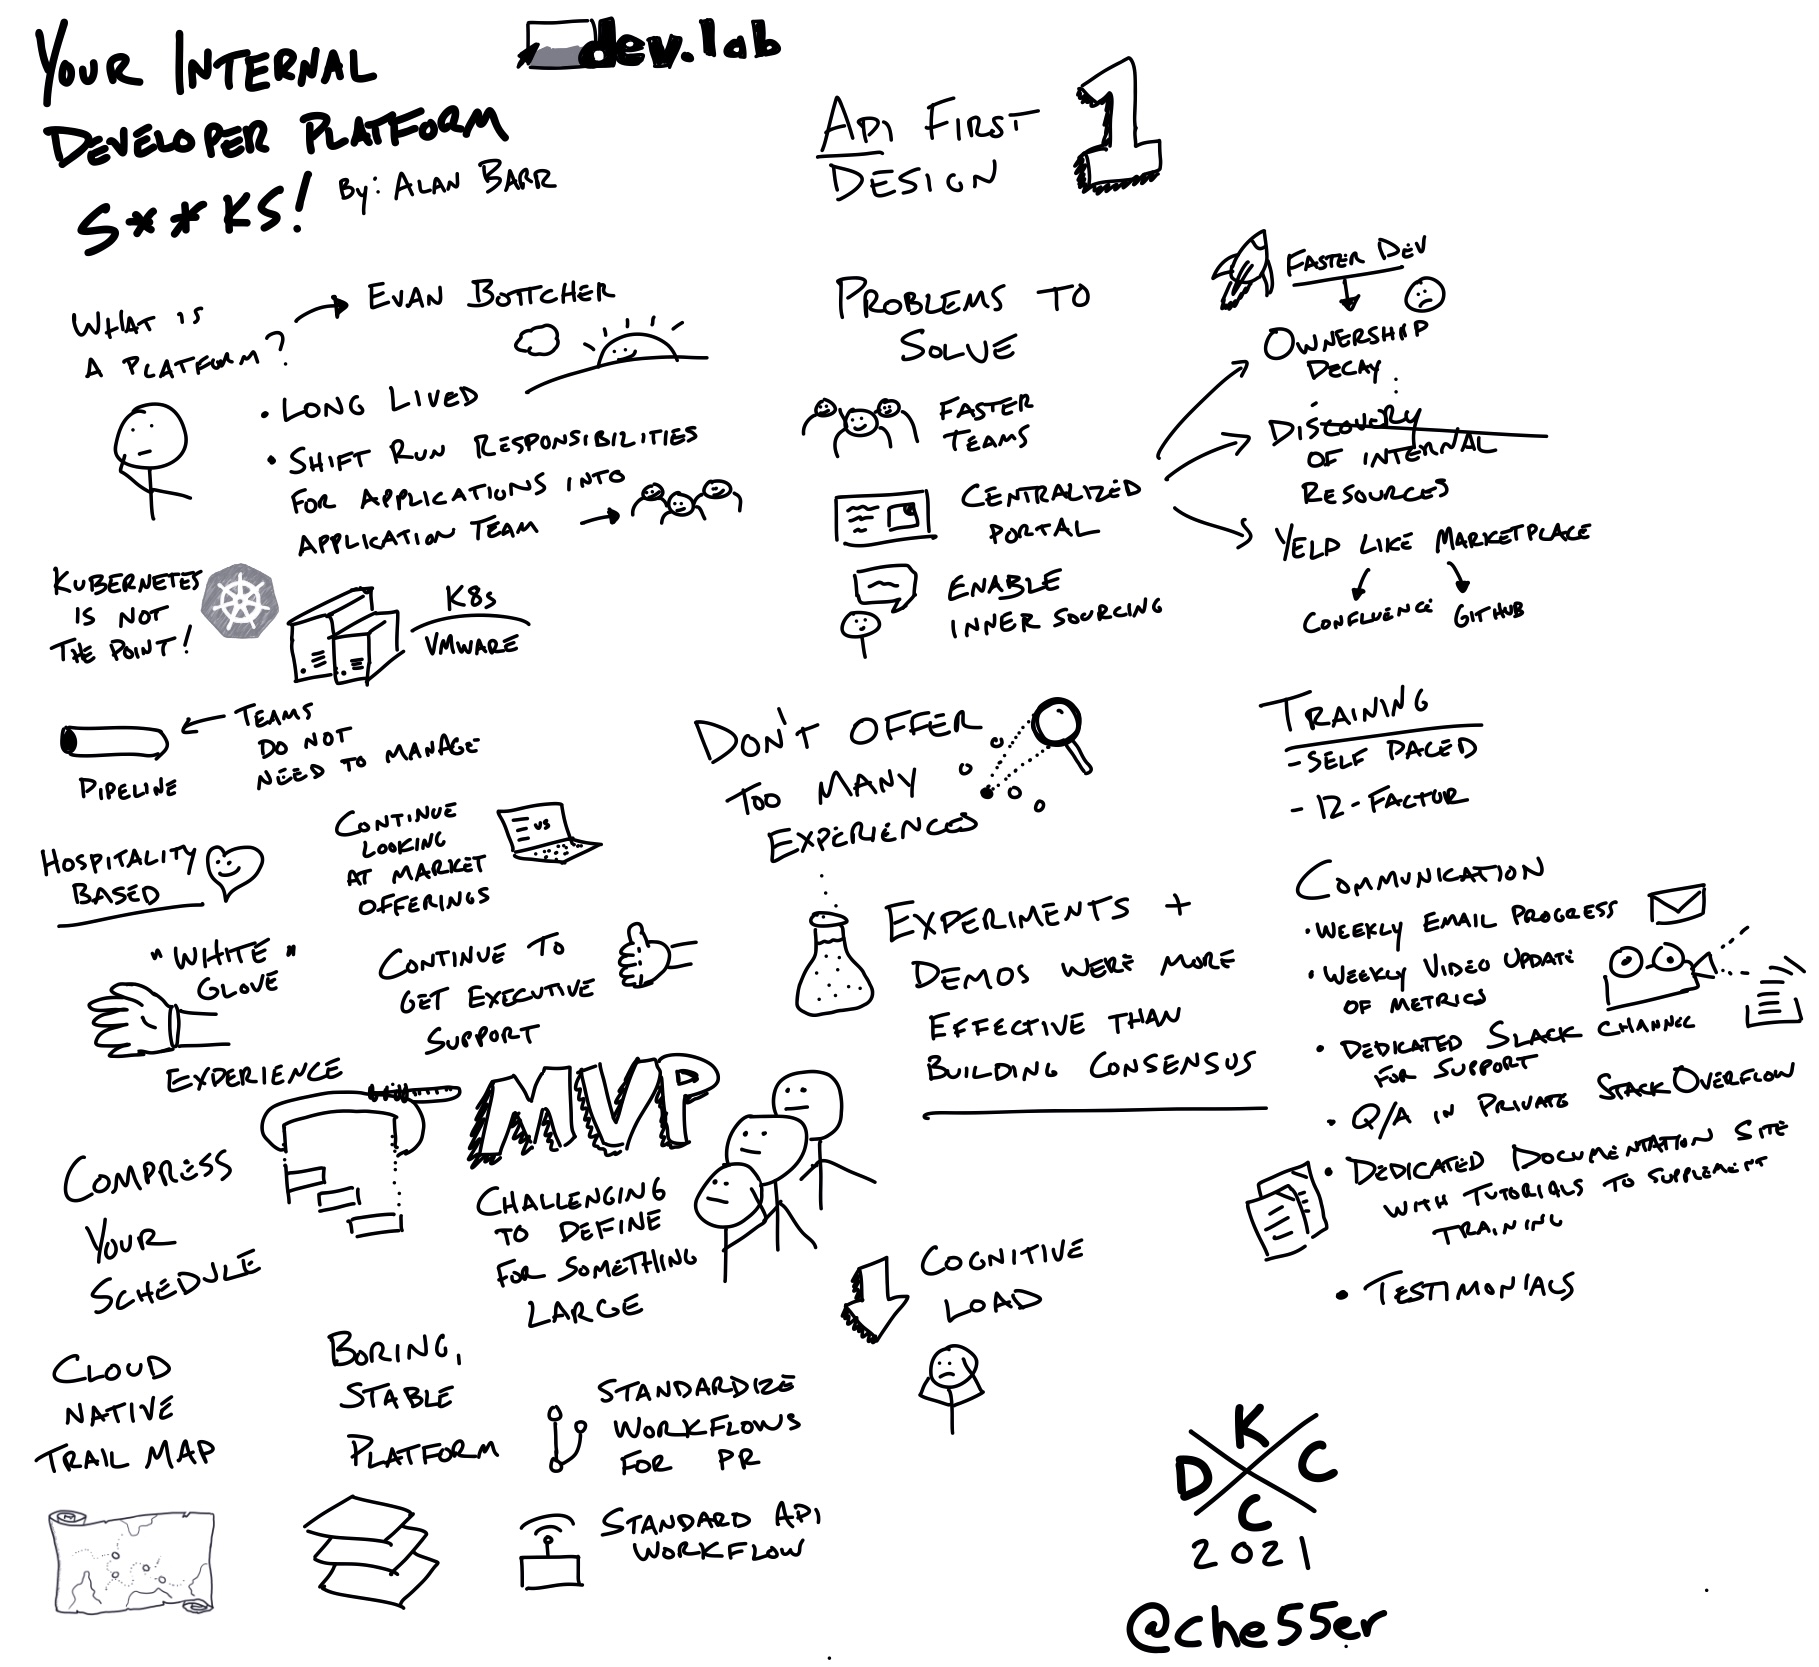 YOUR INTERNAL
DEVELOPER PLATFORM
S**KS!
BY: ALAN BARR
dev.lab
API FIRST
DESIGN
1
WHAT IS
A PLATFORM?
EVAN BOTTCHER
• LONG LIVED
• SHIFT RUN RESPONSIBILITIES
FOR APPLICATIONS INTO
APPLICATION TEAM
KUBERNETES
IS NOT
THE POINT!
K8s
VMWARE
PIPELINE
TEAMS
DO NOT
NEED TO MANAGE
HOSPITALITY
BASED
"WHITE"
GLOVE
EXPERIENCE
CONTINUE
LOOKING
AT MARKET
OFFERINGS
VS
CONTINUE TO
GET EXECUTIVE
SUPPORT
COMPRESS
YOUR
SCHEDULE
MVP
CHALLENGING
TO DEFINE
FOR SOMETHING
LARGE
CLOUD
NATIVE
TRAIL MAP
BORING,
STABLE
PLATFORM
STANDARDIZE
WORKFLOWS
FOR PR
STANDARD API
WORKFLOW
PROBLEMS TO
SOLVE
FASTER
TEAMS
CENTRALIZED
PORTAL
ENABLE
INNER SOURCING
FASTER DEV
OWNERSHIP
DECAY
DISCOVERY
OF INTERNAL
RESOURCES
YELD LIKE MARKETPLACE
CONFLUENCE GITHUB
DON'T OFFER
TOO MANY
EXPERIENCES
EXPERIMENTS +
DEMOS WERE MORE
EFFECTIVE THAN
BUILDING CONSENSUS
COGNITIVE
LOAD
TRAINING
- SELF PACED
- 12-FACTOR
COMMUNICATION
• WEEKLY EMAIL PROGRESS
• WEEKLY VIDEO UPDATE
OF METRICS
• DEDICATED SLACK CHANNEL
FOR SUPPORT
• Q/A IN PRIVATE STACKOVERFLOW
• DEDICATED DOCUMENTATION SITE
WITH TUTORIALS TO SUPPLEMENT
TRAINING
• TESTIMONIALS
K
D C
C
2021
@che55er